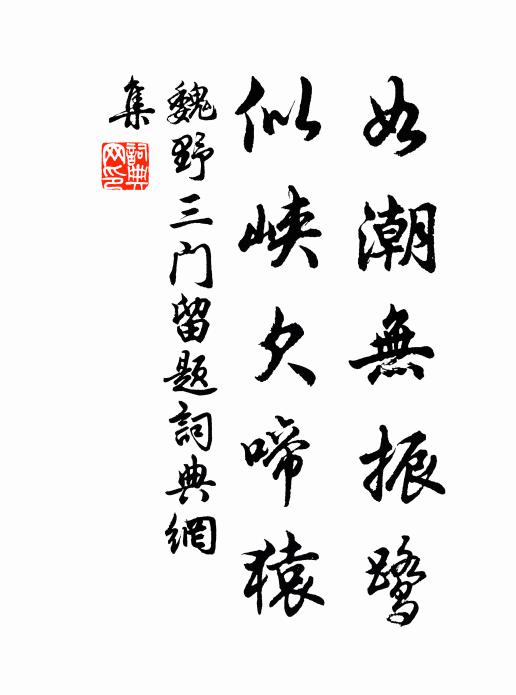 如潮無振鷺
似峽欠啼猿
魏野三门留题詞典網
集
詞典
网印